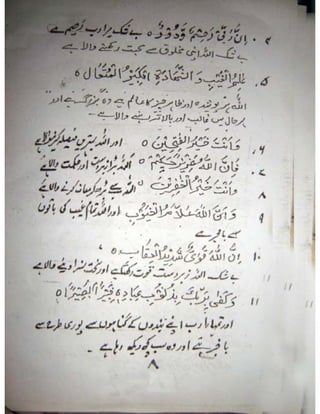 ۴۔ اِنَّ رَبِّیْ رَحِیْمٌ وَّدُوْدٌ ○ بے شک میرا رب رحیم ہے
بے شک اللہ اپنی مخلوق سے محبت رکھنے والا ہے
۵۔ عٰلِمُ الْغَیْبِ وَالشَّھَادَۃِ الْکَبِیْرُ الْمُتَعَالُ ○
اللہ ہر پوشیدہ اور ظاہر چیز کا عالم ہے وہ بزرگ ہے اور
ہر حال میں غالب اور بالاتر رہنے والا ہے۔
۶۔ وَاَنْتَ خَیْرُ الْفٰتِحِیْنَ ○ اور اللہ بہترین فیصلہ کرنے والا ہے
۷ فَاِنَّ اللہَ عَزِیْزٌ حَکِیْمٌ ○ اللہ زبردست اور حکمت والا ہے
۸ وَاَنْتَ خَیْرُ الْغٰفِرِیْنَ ○ اللہ معاف کرنے والا ہے
۹ وَاَنَّ اللہَ عَلَّامُ الْغُیُوْبِ اور اللہ تمام غیب کی باتوں
سے باخبر ہے
۱۰ اِنَّ اللہَ قَوِیٌّ شَدِیْدُ الْعِقَابِ ○
بے شک اللہ زبردست قوت رکھنے اور سخت سزا دینے والا ہے
۱۱ وَکَفٰی بِرَبِّکَ بِذُنُوْبِ عِبَادِہٖ خَبِیْرًا بَصِیْرًا ○
اور تمہارا رب اپنے بندوں کے گناہوں سے پوری طرح سے
باخبر ہے اور وہ سب کچھ دیکھ رہا ہے۔
۸